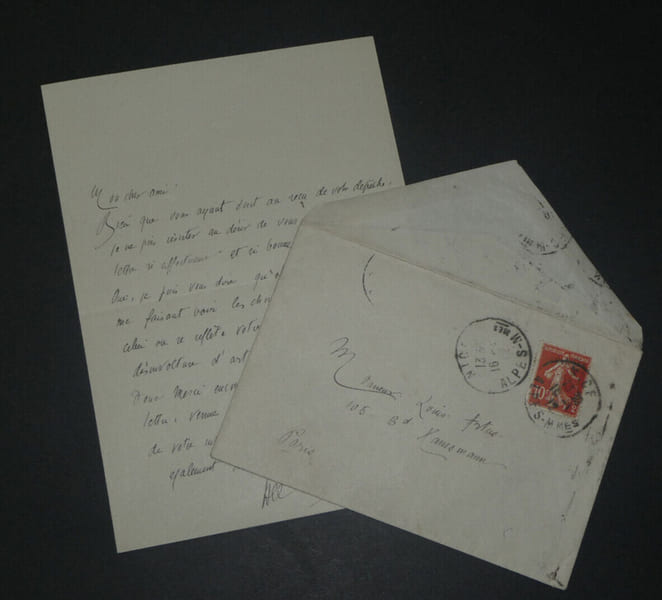 Mon cher ami!
Bien que vous ayant écrit au reçu de votre dépêche,
je ne puis résister au désir de vous
lettre si affectueuse et si bonne
Oui, je puis vous dire qu'
me faisant voir les cho
celui où se reflète votre
désinvolture d'art
Donc Merci encore
lettre, venue
de votre
également
Monsieur Louis Artus
105 Bd Haussmann
Paris
NICE
ALPES-MMES
10
NICE
S-MMES